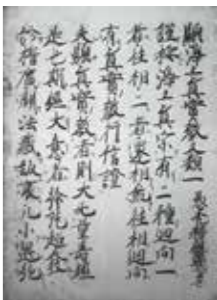 顯淨土真實教文類一 愚禿釋親鸞集
謹按淨土真宗有二種迴向一
者往相二者還相就往相迴向
有真實教行信證
夫顯真實教者則大無量壽經
是也斯經大意者彌陀超發
於誓廣開法藏致哀凡小選施